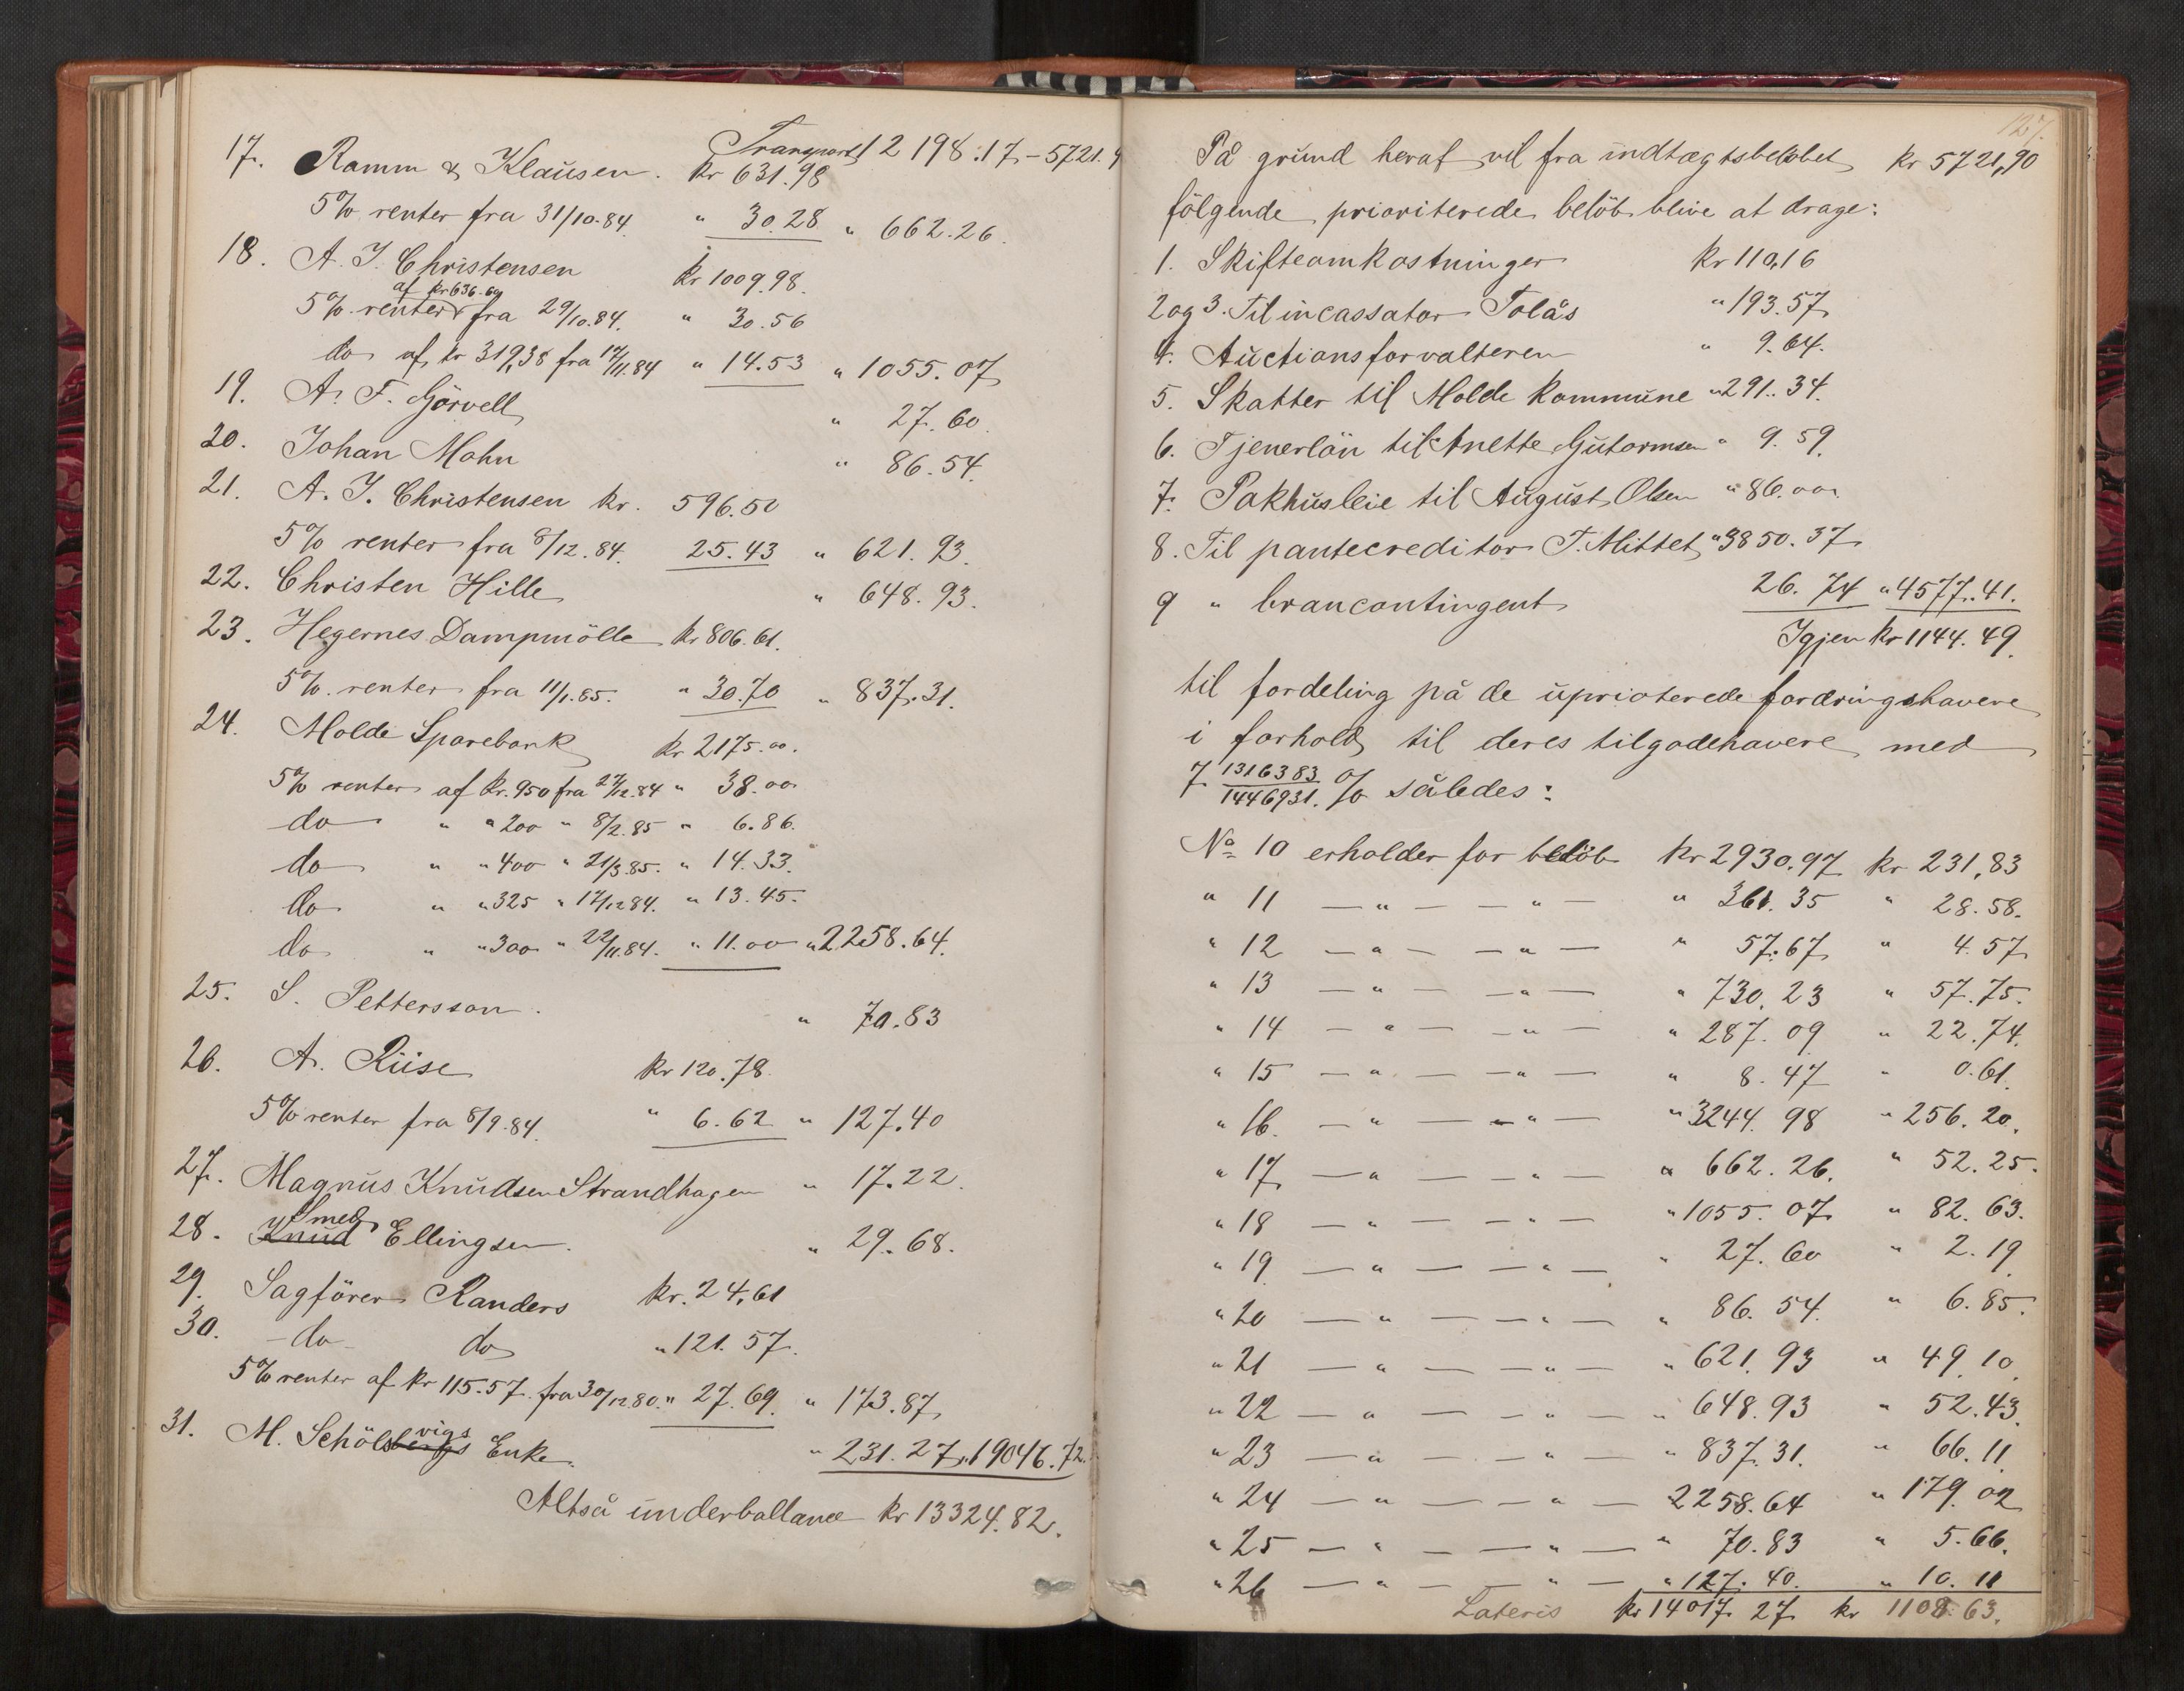 Transport 12 198.17 - 5721.9
17. Ramm & Klausen. kr 631.98
5% renter fra 31/10.84. " 30.28 " 662.26.
18. A. J. Christensen kr 1009.98.
af kr 636.69
5% renter fra 29/10.84. " 30.56
do af kr 319,38 fra 14/11.84 " 14.53 " 1055.07
19. A. F. Görvell " 27.60.
20. Johan Mohn " 86.54.
21. A. J. Christensen kr. 596.50
5% renter fra 8/12.84. 25.43 " 621.93.
22. Christen Hille " 648.93.
23. Hegernes Dampmölle kr 806.61.
5% renter fra 11/1.85. " 30.70 " 837.31.
24. Molde Sparebank kr 2175.00.
5% renter af kr. 950 fra 27/12.84 " 38.00
do " " 200 " 8/2.85 " 6.86.
do " " 400 " 21/3.85. " 14.33.
do " " 325 " 17/12 84. " 13.45.
do " " 300 " 22/11.84. " 11.00 " 2258.64.
25. S. Pettersson. " 70.83
26. A. Riise kr 120.78.
5% renter fra 8/9.84. " 6.62 " 127.40
27. Magnus Knudsen Strandhagen " 17.22.
Smed
28. Knud Ellingsen. " 29.68.
29. Sagförer Randers kr. 24,61
30. - do - do " 121.57.
5% renter af kr 115.57. fra 30/12 80. " 27.69. " 173.87
vigs
31. M. Schölsbergs Enke. " 231.27 " 19046.72.
Altså underballance kr 13324.82.
127.
På grund heraf vil fra indtægtsbelöbet kr 5721,90
fölgende prioriterede belöb blive at drage:
1. Skifteomkostninger kr 110,16
2 og 3. Til incassator Tolås " 193.57
4. Auctionsforvalteren " 9.64.
5. Skatter til Molde kommune " 291.34.
6. Tjenerlön til Anette Gutormsen " 9.59.
7. Pakhusleie til August Olsen " 86.00.
8. Til pantecreditor T. Mittet " 3850.37
9 " brancontingent 26.74 " 4577.41.
Igjen kr 1144.49.
til fordeling på de uprioterede fordringshavere
i forhold til deres tilgodehavere med
7 1316383/1446931. % således:
No 10 erholder for belöb kr 2930.97 kr 231,83
" 11 — " — — " — " 361.35 " 28.58.
" 12 — " — — " — " 57.67 " 4.57
" 13 — " — — " — " 730.23 " 57.75.
" 14 — " — — " — " 287.09 " 22.74.
" 15 — " — — " — " 8.47 " 0.61.
" 16. — " — — " — " 3244.98 " 256.20.
" 17 — " — — " — " 662.26. " 52.25.
" 18 — " — — " — " 1055.07 " 82.63.
" 19 — " — — " — " 27.60 " 2.19
" 20 — " — — " — " 86.54. " 6.85.
" 21 — " — — " — " 621.93 " 49.10
" 22 — " — — " — " 648.93 " 52.43.
" 23 — " — — " — " 837.31. " 66.11
" 24 — " — — " — 2258.64 " 179.02
" 25 — " — — " — " 70.83 " 5.66.
" 26 — " — — " — " 127.40. " 10.11
Lateris kr 14017.27 kr 1108.63.